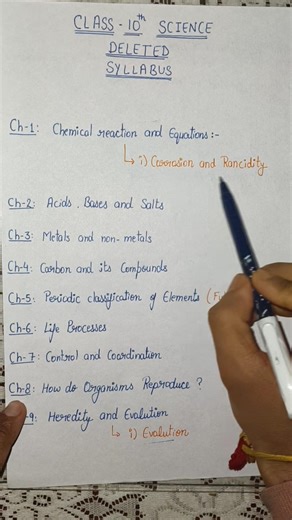 CLASS - 10th SCIENCE
DELETED
SYLLABUS
Ch-1: Chemical reaction and Equations :-
↳ i) Corrosion and Rancidity
Ch-2: Acids, Bases and Salts
Ch-3: Metals and non-metals
Ch-4: Carbon and its Compounds
Ch-5: Periodic classification of Elements (
Ch-6: Life Processes
Ch-7: Control and Coordination
Ch-8: How do Organisms Reproduce ?
-9: Heredity and Evalution
↳ i) Evalution